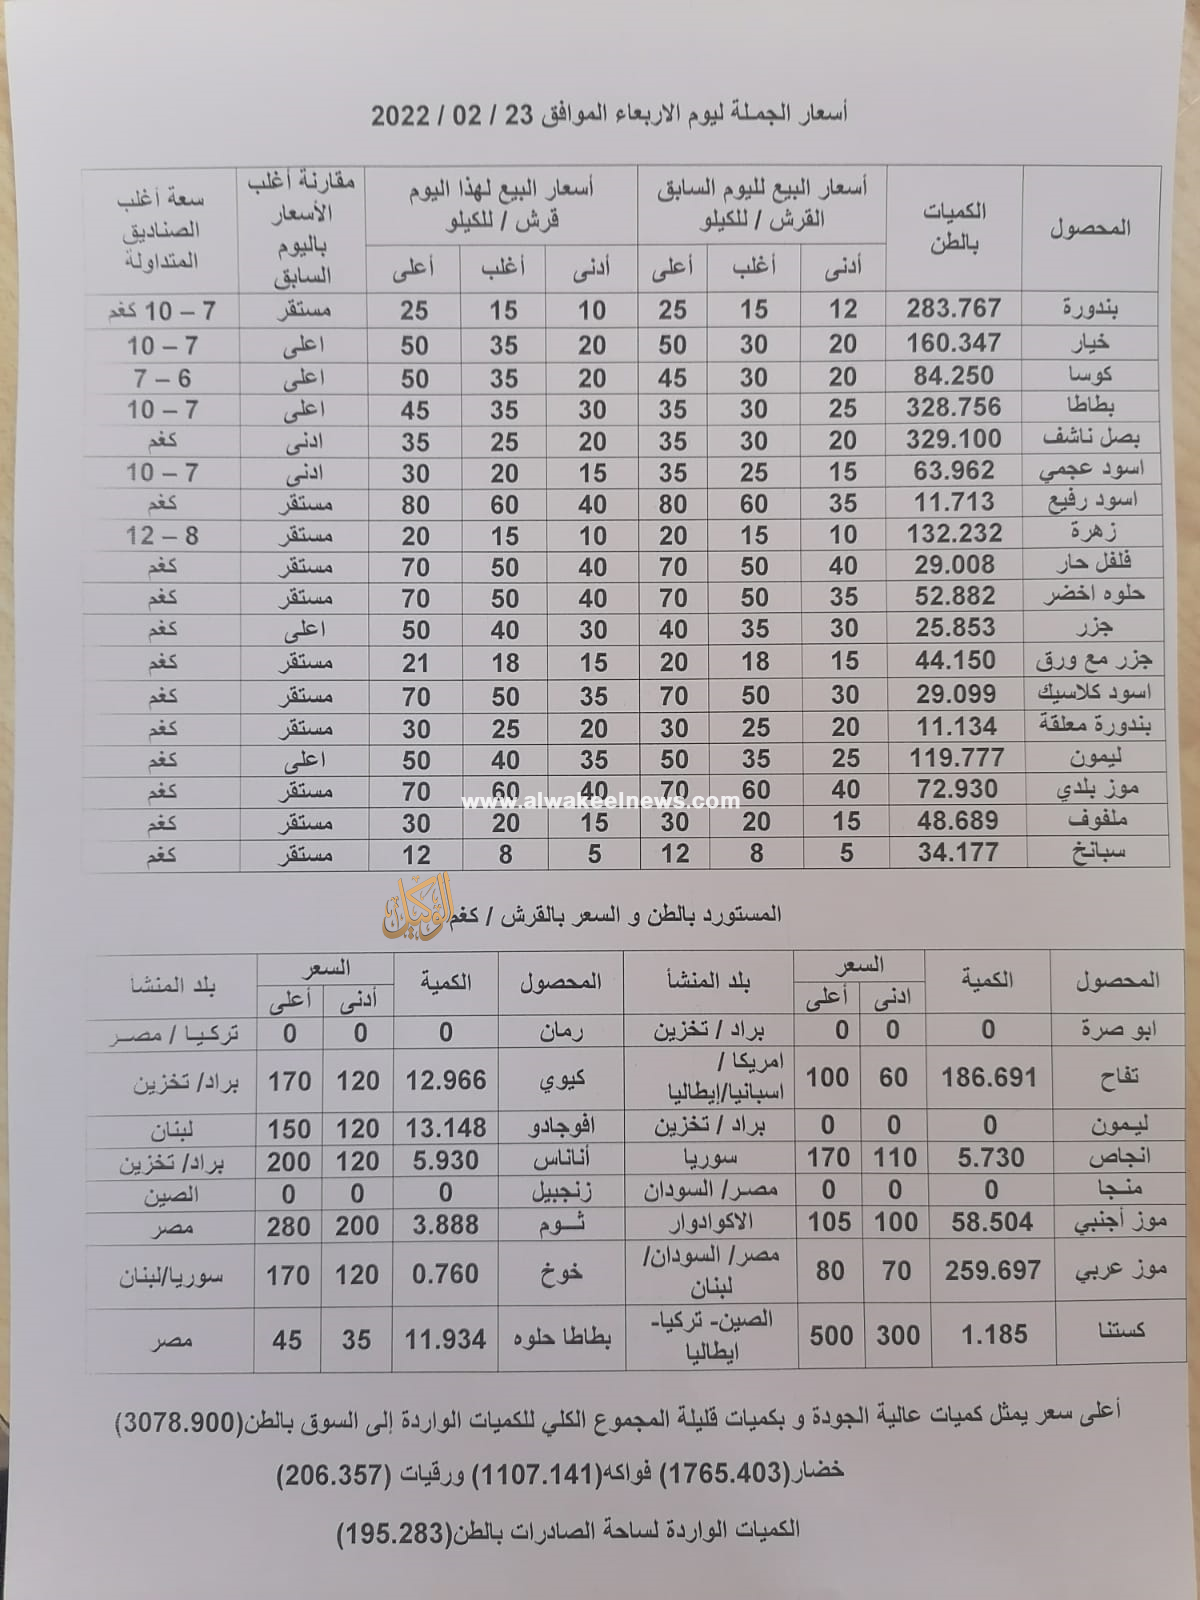 أسعار الجملة ليوم الاربعاء الموافق 23 / 02 / 2022
المحصول الكميات بالطن أسعار البيع لليوم السابق القرش / للكيلو أسعار البيع لهذا اليوم قرش / للكيلو مقارنة أغلب الأسعار باليوم السابق سعة أغلب الصناديق المتداولة
أدنى أغلب أعلى أدنى أغلب أعلى
بندورة 283.767 12 15 25 10 15 25 مستقر 7 – 10 كغم
خيار 160.347 20 30 50 20 35 50 اعلى 7 – 10
كوسا 84.250 20 30 45 20 35 50 اعلى 6 – 7
بطاطا 328.756 25 30 35 30 35 45 اعلى 7 – 10
بصل ناشف 329.100 20 30 35 20 25 35 ادنى كغم
اسود عجمي 63.962 15 25 35 15 20 30 ادنى 7 – 10
اسود رفيع 11.713 35 60 80 40 60 80 مستقر كغم
زهرة 132.232 10 15 20 10 15 20 مستقر 8 – 12
فلفل حار 29.008 40 50 70 40 50 70 مستقر كغم
حلوه اخضر 52.882 35 50 70 40 50 70 مستقر كغم
جزر 25.853 30 35 40 30 40 50 اعلى كغم
جزر مع ورق 44.150 15 18 20 15 18 21 مستقر كغم
اسود كلاسيك 29.099 30 50 70 35 50 70 مستقر كغم
بندورة معلقة 11.134 20 25 30 20 25 30 مستقر كغم
ليمون 119.777 25 35 50 35 40 50 اعلى كغم
موز بلدي 72.930 40 60 70 40 60 70 مستقر كغم
www.alwakeelnews.com
ملفوف 48.689 15 20 30 15 20 30 مستقر كغم
سبانخ 34.177 5 8 12 5 8 12 مستقر كغم
المستورد بالطن و السعر بالقرش / كغم
الوكيل
المحصول الكمية السعر بلد المنشأ المحصول الكمية السعر بلد المنشأ
ادنى أعلى أدنى أعلى
ابو صرة 0 0 0 براد / تخزين رمان 0 0 0 تركيا / مصر
تفاح 186.691 60 100 امريكا / اسبانيا/إيطاليا كيوي 12.966 120 170 براد/ تخزين
ليمون 0 0 0 براد / تخزين افوجادو 13.148 120 150 لبنان
انجاص 5.730 110 170 سوريا أناناس 5.930 120 200 براد/ تخزين
منجا 0 0 0 مصر/ السودان زنجبيل 0 0 0 الصين
موز أجنبي 58.504 100 105 الاكوادوار ثوم 3.888 200 280 مصر
موز عربي 259.697 70 80 مصر/ السودان/ لبنان خوخ 0.760 120 170 سوريا/لبنان
كستنا 1.185 300 500 الصين- تركيا- ايطاليا بطاطا حلوه 11.934 35 45 مصر
أعلى سعر يمثل كميات عالية الجودة و بكميات قليلة المجموع الكلي للكميات الواردة إلى السوق بالطن(3078.900)
خضار(1765.403) فواكه(1107.141) ورقيات (206.357)
الكميات الواردة لساحة الصادرات بالطن(195.283)